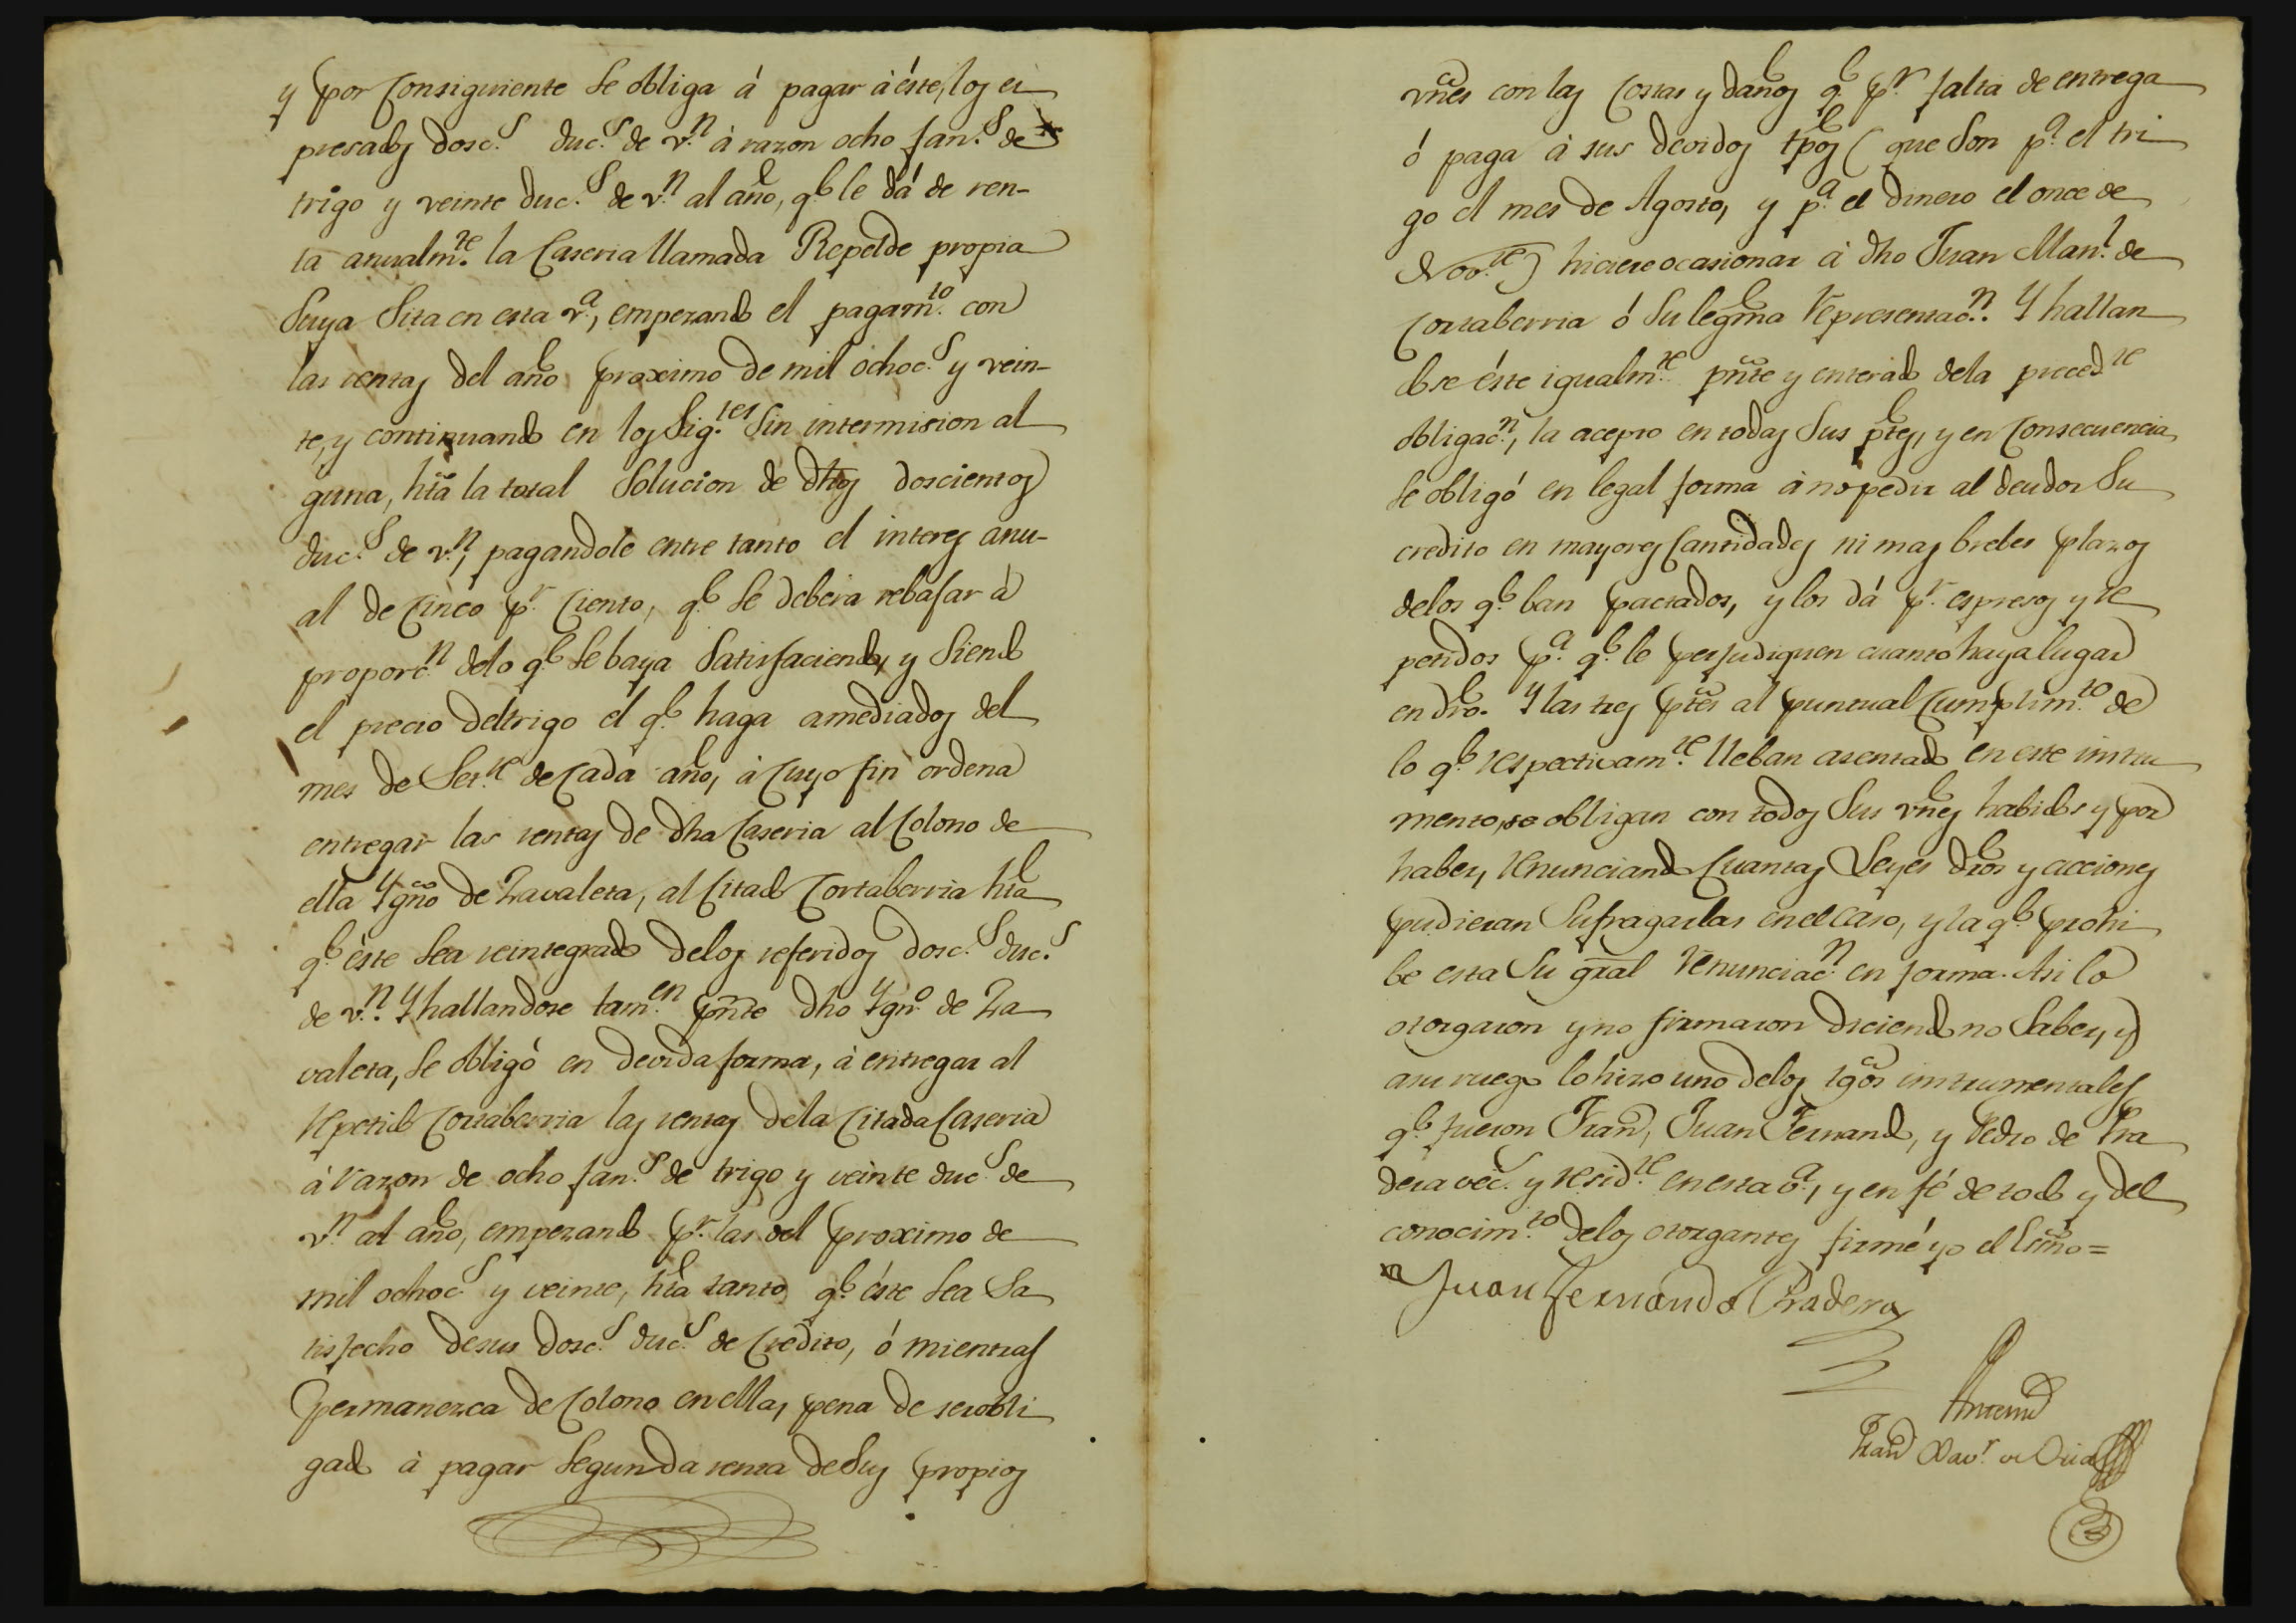 y por consiguiente se obliga á pagar á éste, los es
presados dosc.s duc.s de v.n á razon ocho fan.s de
trigo y veinte duc.s de v.n al año, q.e le dá de ren-
ta anualm.te la Caseria llamada Repelde propia
suya sita en esta v.a, empezando el pagam.to con
las rentas del año proximo de mil ochoc.s y vein-
te, y continuando en los sig.tes sin intermision al
guna, hta la total solucion de dhos doscientos
duc.s de v.n, pagandole entre tanto el interes anu-
al de cinco p.r ciento, q.e se debera rebajar á
proporc.n delo q.e se baya satisfaciendo, y siendo
el precio del trigo el q.e haga amediados del
mes de Set.re de cada año, á cuyo fin ordena
entregar las rentas de dha Caseria al Colono de
ella Ygno de Zavaleta, al citado Cortaberria hta
q.e éste sea reintegrado delos referidos dosc.s duc.s
de v.n. Y hallandose tam.en pnte dho Ygn.o de Za
valeta, se obligó en devida forma, á entregar al
repetido Cortaberria las rentas dela citada Caseria
á razon de ocho fan.s de trigo y veinte duc.s de
v.n al año, empezando p.r las del proximo de
mil ochoc.s y veinte, hta tanto q.e éste sea sa
tisfecho desus dosc.s duc.s de credito, ó mientras
permanezca de Colono en ella, pena de ser obli
gado á pagar segunda renta de sus propios
vnes con las costas y daños q.e p.r falta de entrega
ó paga á sus devidos tpos (que son p.a el tri
go el mes de Agosto, y p.a el dinero el once de
Nov.re) hiciere ocasionar á dho Juan Man.l de
Cortaberria ó su legma representac.n. Y hallan
dose éste igualm.te pnte y enterado dela preced.te
obligac.n, la acepto en todas sus ptes, y en consecuencia
se obligó en legal forma á no pedir al deudor su
credito en mayores cantidades ni mas brebes plazos
delos q.e ban pactados, y los dá p.r espresos y re
petidos p.a q.e le perjudiquen cuanto haya lugar
en dro. Y las tres ptes al puntual cumplim.to de
lo q.e respectivam.te lleban asentado en este instru
mento, se obligan con todos sus vnes habidos y por
haber, renunciando cuantas Leyes dros y acciones
pudieran sufragarlas en el caso, y la q.e prohi
be esta su gral renunciac.n en forma. Asi lo
otorgaron y no firmaron diciendo no saber, y
asu ruego lo hizo uno delos tgos instrumentales
q.e fueron Fran.co, Juan Fernando, y Pedro de Pra
dera vec.s y resid.te en esta v.a, y en fé de todo y del
conocim.to delos otorgantes firmé yo el Esno=
Juan Fernando Pradera
Antemi
Fran.co Xav.r de